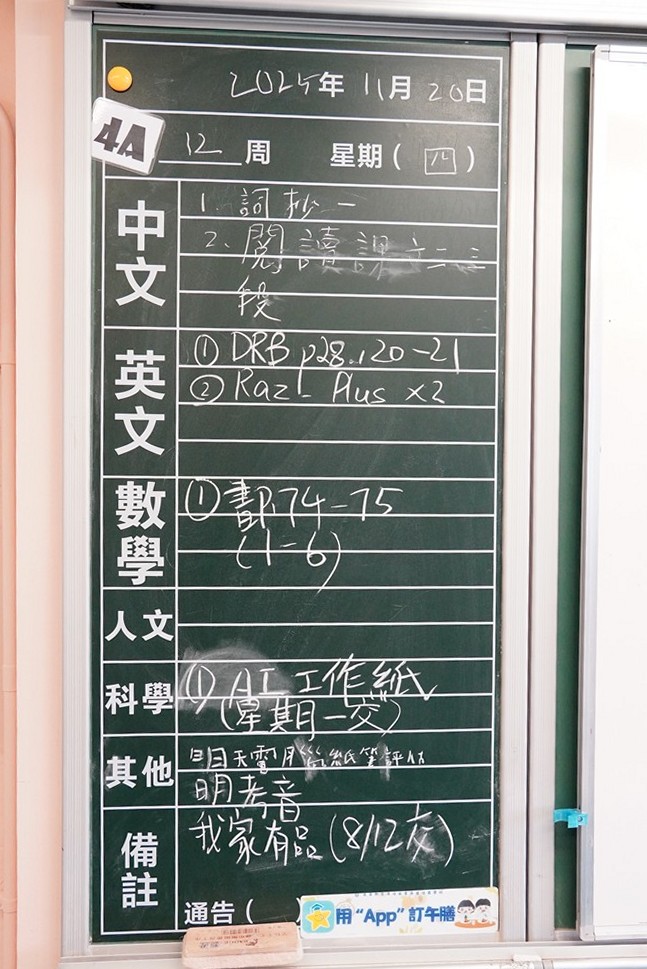 2025年 11月 20日
4A
12 周 星期( 四 )
中文
1. 詞抄一
2. 閱讀課文二、三
段
英文
① DRB p28., 20-21
② Raz- Plus x2
數學
① 書P.74-75
(1-6)
人文
科學
① AI 工作紙
(星期一交)
其他
明天電腦紙筆評估
明考音
備註
我家有品 (8/12交)
通告(
用 “App” 訂午膳